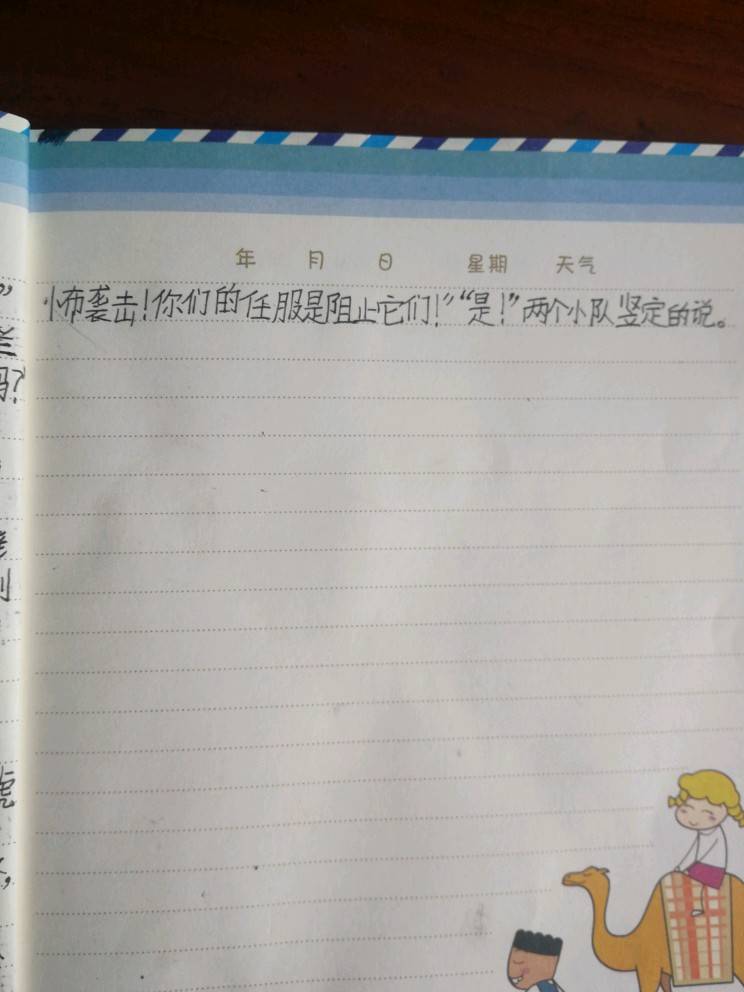 年 月 日 星期 天气
小布袭击！你们的任服是阻止它们！”“是！”两个小队竖定的说。
”
吗？
刂
虎
，